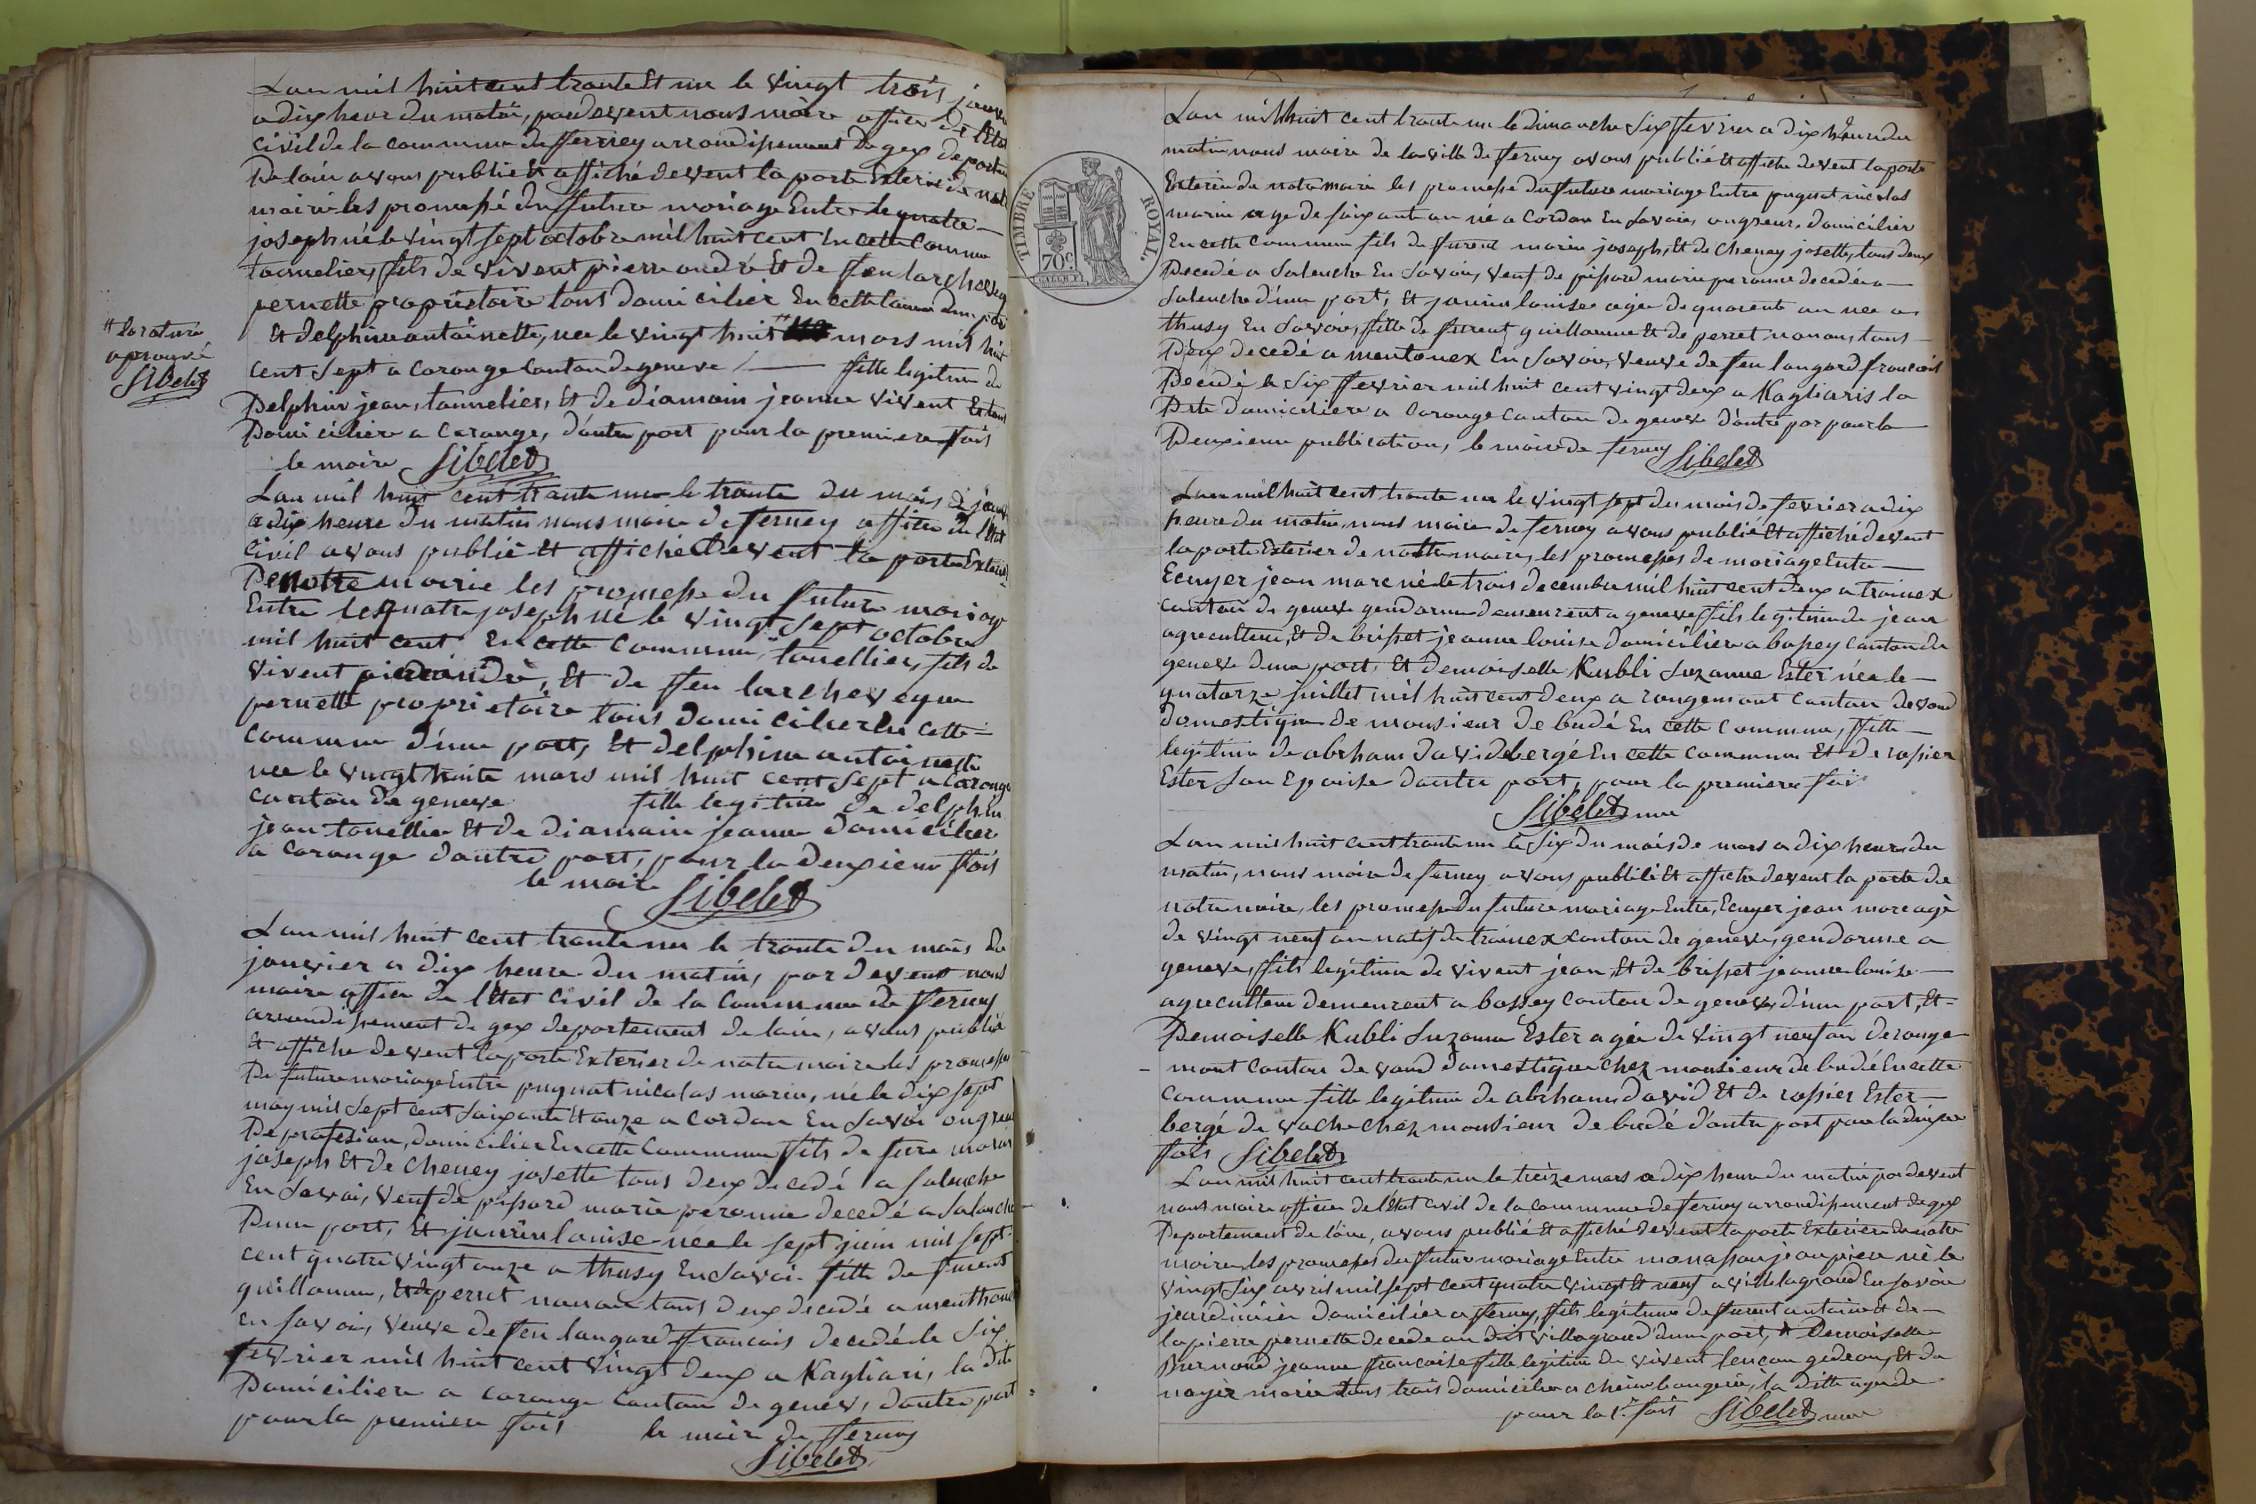 Lan mil huit cent trante Et un le vingt trois janvier
a dix heur du matin, pardevent nous maire officier de lEtat
civil de la commune de fferney arrondissement de gex departem
De lain avons publié Et affiché devent la porte Exterieur de notre
mairie les promesse du ffuture mariage Entre lequatre —
joseph né le vingt sept octobre mil huit cent En cette Commune
tonnelier, ffils de vivent pierre andré Et de ffeu larcheveq
pernette propriétaire tous domicilier En cette Commune dune part
Et delphine antoinette, née le vingt huit mars mil huit
cent sept a Carouge Canton de geneve / — fille legitime de
Delphin jean, tonnelier, Et de diamain jeanne vivent Et tous
Domicilière a Carouge, dautre part pour la premiere ffois
le maire Sibelet
# la rature
aprouvé
Sibelet
Lan mil huit cent trante un le trante du mois de janv
a dix heure du matin nous maire de fferney officier de lEtat
Civil avons publié Et affiché devent la porte Exterieur
De notre mairie les promesse du future mariage
Entre lequatre joseph né le vingt sept octobre
mil huit cent En cette Commune, tonellier, fils de
vivent pierre andré, Et de ffeu larcheveque
pernette proprietaire tous domicilier En cette —
Commune dune part, Et delphine antoinette
née le vingt huite mars mil huit cent sept a Carouge
Canton de geneve fille legitime de delphin
jean tonellier Et de diamain jeanne domicilier
a Carouge dautre part, pour la deuxieme ffois
le maire Sibelet
Lan mil huit cent trante un le trante du mois de
janvier a dix heure du matin, pardevent nous
maire officier de lEtat Civil de la Commune de fferney
arrondissement de gex departement de lain, avons publié
Et affiche devent la porte Exterier de notre mairie les promesses
De future mariage Entre pugnat nicolas marin, né le dix sept
may mil sept cent soixante Et onze a Cordon En Savoi ongreur
De profesion, domicilier En cette Commune ffils de furent marin
joseph Et de Cheney josette tous deux decedé a Salenche
En Savoi, veuf de pissard marie peronne decedé a Salanche
Dune part, Et janrin louise née le sept juin mil sept
cent quatre vingt onze a thusy En Savoi fille de furent
guillaume, Et de perret nanon tous deux decedé a menthone
En savoi, veuve de ffeu langard ffrancois decedé le six
ffevrier mil huit cent vingt deux a Kagliaris, la dite
Domicilier a Carouge Canton de geneve, dautre part
pour la premiere ffois le maire de fferney
Sibelet
TIMBRE ROYAL
70c
Lan mil huit cent trante un le dimanche six ffevrier a dix heure du
matin nous maire de la ville de fferney avons publié Et affiche devent la porte
Exterieu de notre mairie les promesse du ffuture mariage Entre pugnat nicolas
marin age de soixant an né a Cordon En Savoie, ongreur, domicilier
En cette Commune fils de furent marin joseph, Et de Cheney josette, tous deux
Decedé a Salenche En Savoie, veuf de pissard marie peronne decedé a —
Salenche d'une part, Et janrin louise agée de quarente an née a
thusy En Savoie, fille de furent guillaume Et de perret nanon, tous —
Deux decedé a mentonex En Savoie, veuve de ffeu langard francois
Decedé le six ffevrier mil huit cent vingt deux a Kagliaris la
Dite domicilière a Carouge canton de geneve d'autre par pour la
Deuxieme publication, le maire de ferney Sibelet
Lan mil huit cent trante un le vingt sept du mois de fevrier a dix
heure du matin, nous maire de ferney avons publié Et affiché devent
la porte Exterier de nottre mairie, les promesses de mariage Entre —
Ecuyer jean marc né le trois decembre mil huit cent deux a troinex
Canton de geneve gendarme demeurent a geneve ffils legitime de jean
agreculteur, Et de brisset jeanne louise domicilier a bossey Canton de
geneve dune part, Et demoiselle Kubli Suzanne Ester née le —
quatorze juillet mil huit cent deux a rougemont Canton devaud
domestique de monsieur de budé En cette Commune, ffille —
legitime de abrham david bergé En cette Commune Et de rossier
Ester son Epouse dautre part, pour la premiere foi
Sibelet mre
Lan mil huit cent trante un le six du mois de mars a dix heure du
matin, nous maire de ferney avons publié Et affiche devent la porte de
notre mairie, les promesse du future mariage Entre, Ecuyer jean marc agé
de vingt neuf an natif de troinex canton de geneve, gendarme a
geneve, ffils legitime de vivent jean, Et de brisset jeanne louise —
agreculteur demeurent a bossey canton de geneve, d'une part, Et =
Demoiselle Kubli Suzanne Ester agée de vingt neuf an de rouge
- mont Canton de vaud domestique chez monsieur de budé En cette
Commune fille legitime de abrhams david Et de rossier Ester —
bergé de vache chez monsieur de budé d'autre part pour la deuxieme
ffois Sibelet
Lan mil huit cent trante un le treize mars a dix heure du matin pardevent
nous maire officier de lEtat civil de la commune de ferney arrondissement de gex
Departement de l'ain, avons publié Et affiché devent la porte Exterieur de notre
mairie, les promesses du futur mariage Entre jean pierre né le
vingt six avril mil sept cent quatre vingt Et neuf a ville la grand En Savoie
jeardinier domicilié a fferney, ffils legitime de furent antoine Et de —
lapierre pernette decede au dit villagrand d'une part, Et Demoiselle
Burnand jeanne francoise fille legitime de vivent gedeon, Et de
noyer marie tous trois domicilie a chene bougerie, la ditte age de
pour la 1re. fois Sibelet mre